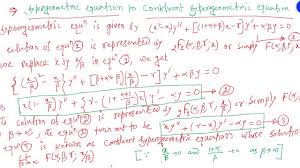 Hypergeometric equation to Confluent hypergeometric equation
hypergeometric equⁿ is given by (x²-x)y'' + [(1+α+β)x-γ]y' + αβy = 0
solution of equⁿ① is represented by ₂F₁(α,β,γ,x) or simply F(α,β,γ,x)
we replace x by x/β in equⁿ①, we get
{(x/β)² - x/β}
y'' + αβy = 0
x(1-x/β)y'' + {γ-(1+ (α+1)/β)x}y' - αy = 0 → ②
To solution of equⁿ② is represented by ₂F₁(α,β,γ, x/β) or simply F(
β→∞, The equⁿ② turn out to be xy'' + (γ-x)y' - αy = 0 → ③
equⁿ③ is known as Confluent hypergeometric equation whose solution
F(α,β,γ, x/β) [∵ →0 and 1+ →1 as β→∞]